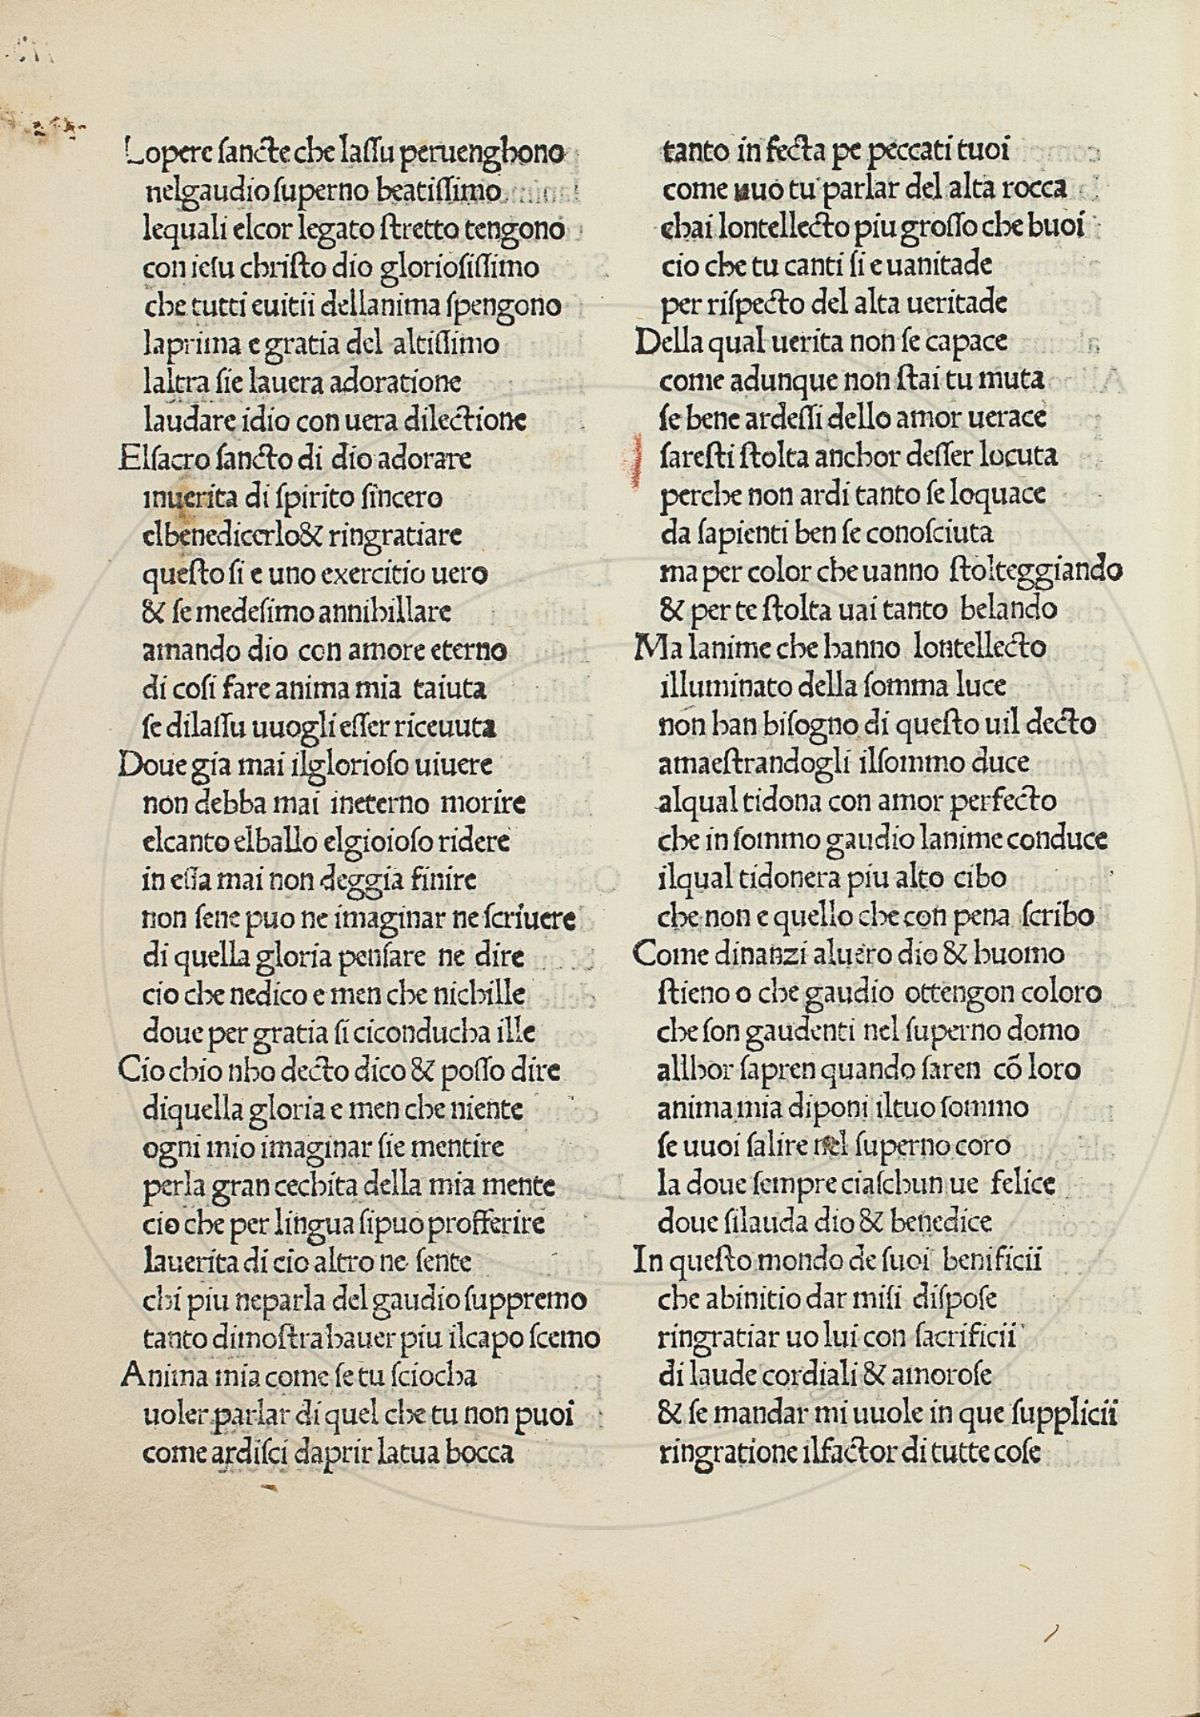 Lopere ſancte che laſſu peruenghono
nelgaudio ſuperno beatiſſimo
lequali elcor legato ſtretto tengono
con ieſu chriſto dio glorioſiſſimo
che tutti euitii dellanima ſpengono
laprima e gratia del altiſſimo
laltra ſie lauera adoratione
laudare idio con uera dilectione
Elſacro ſancto di dio adorare
inuerita di ſpirito ſincero
elbenedicerlo& ringratiare
queſto ſi e uno exercitio uero
& ſe medeſimo annihillare
amando dio con amore eterno
di coſi fare anima mia taiuta
ſe dilaſſu uuogli eſſer riceuuta
Doue gia mai ilglorioſo uiuere
non debba mai ineterno morire
elcanto elballo elgioioſo ridere
in eſſa mai non deggia finire
non ſene puo ne imaginar ne ſcriuere
di quella gloria penſare ne dire
cio che nedico e men che nichille
doue per gratia ſi ciconducha ille
Cio chio nho decto dico & poſſo dire
diquella gloria e men che niente
ogni mio imaginar ſie mentire
perla gran cechita della mia mente
cio che per lingua ſipuo profferire
lauerita di cio altro ne ſente
chi piu neparla del gaudio ſuppremo
tanto dimoſtra hauer piu ilcapo ſcemo
Anima mia come ſe tu ſciocha
uoler parlar di quel che tu non puoi
come ardiſci daprir latua bocca
tanto in fecta pe peccati tuoi
come uuo tu parlar del alta rocca
chai lontellecto piu groſſo che buoi
cio che tu canti ſi e uanitade
per riſpecto del alta ueritade
Della qual uerita non ſe capace
come adunque non ſtai tu muta
ſe bene ardeſſi dello amor uerace
ſareſti ſtolta anchor deſſer locuta
perche non ardi tanto ſe loquace
da ſapienti ben ſe conoſciuta
ma per color che uanno ſtolteggiando
& per te ſtolta uai tanto belando
Ma lanime che hanno lontellecto
illuminato della ſomma luce
non han biſogno di queſto uil decto
amaeſtrandogli ilſommo duce
alqual tidona con amor perfecto
che in ſommo gaudio lanime conduce
ilqual tidonera piu alto cibo
che non e quello che con pena ſcribo
Come dinanzi aluero dio & huomo
ſtieno o che gaudio ottengon coloro
che ſon gaudenti nel ſuperno domo
allhor ſapren quando ſaren cõ loro
anima mia diponi iltuo ſommo
ſe uuoi ſalire nel ſuperno coro
la doue ſempre ciaſchun ue felice
doue ſilauda dio & benedice
In queſto mondo de ſuoi benificii
che abinitio dar miſi diſpoſe
ringratiar uo lui con ſacrificii
di laude cordiali & amoroſe
& ſe mandar mi uuole in que ſupplicii
ringratione ilfactor di tutte coſe